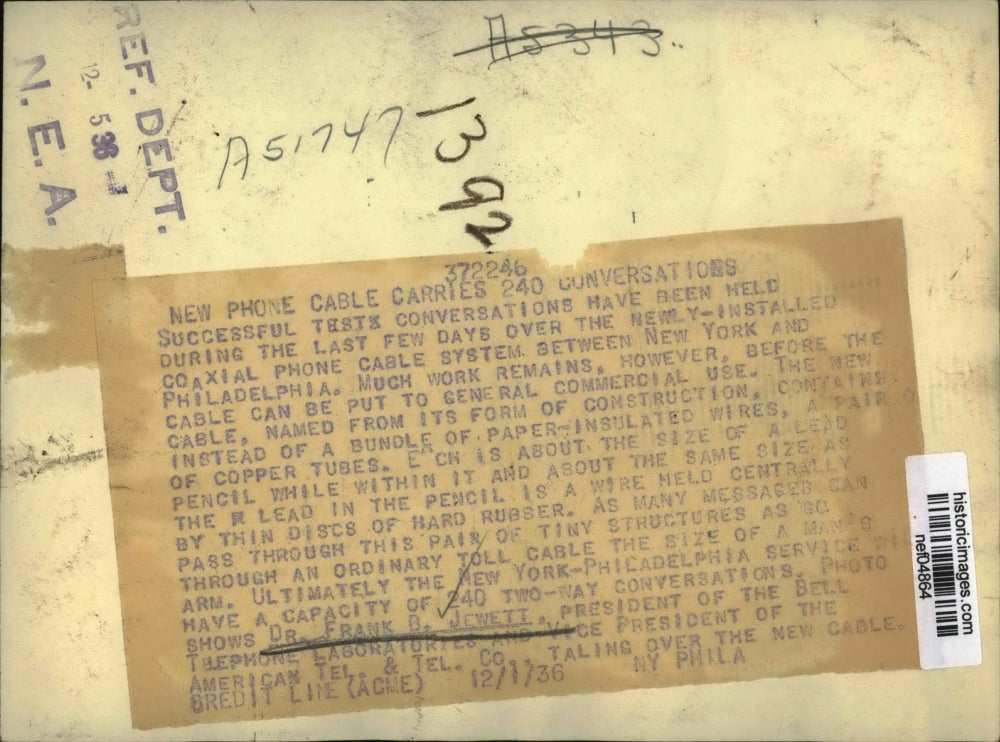 A5343
REF. DEPT.
12- 536
N. E. A.
A51747
1392
372246
NEW PHONE CABLE CARRIES 240 CONVERSATIONS
SUCCESSFUL TESTS CONVERSATIONS HAVE BEEN HELD
DURING THE LAST FEW DAYS OVER THE NEWLY-INSTALLED
COAXIAL PHONE CABLE SYSTEM BETWEEN NEW YORK AND
PHILADELPHIA. MUCH WORK REMAINS, HOWEVER, BEFORE THE
CABLE CAN BE PUT TO GENERAL COMMERCIAL USE. THE NEW
CABLE, NAMED FROM ITS FORM OF CONSTRUCTION, CONTAINS
INSTEAD OF A BUNDLE OF PAPER-INSULATED WIRES, A PAIR O
OF COPPER TUBES. E CH IS ABOUT THE SIZE OF A LEAD
PENCIL WHILE WITHIN IT AND ABOUT THE SAME SIZE AS
THE LEAD IN THE PENCIL IS A WIRE HELD CENTRALLY
BY THIN DISCS OF HARD RUBBER. AS MANY MESSAGES CAN
PASS THROUGH THIS PAIR OF TINY STRUCTURES AS GO
THROUGH AN ORDINARY TOLL CABLE THE SIZE OF A MAN'S
ARM. ULTIMATELY THE NEW YORK-PHILADELPHIA SERVICE
HAVE A CAPACITY OF 240 TWO-WAY CONVERSATIONS. PHOTO
SHOWS DR. FRANK B. JEWETT, PRESIDENT OF THE BELL
LABORATORIES AND VICE PRESIDENT OF THE
AMERICAN TEL. & TEL. CO., TALING OVER THE NEW CABLE.
CREDIT LINE (ACME) 12/1/36 NY PHILA
historicimages.com
nef04864